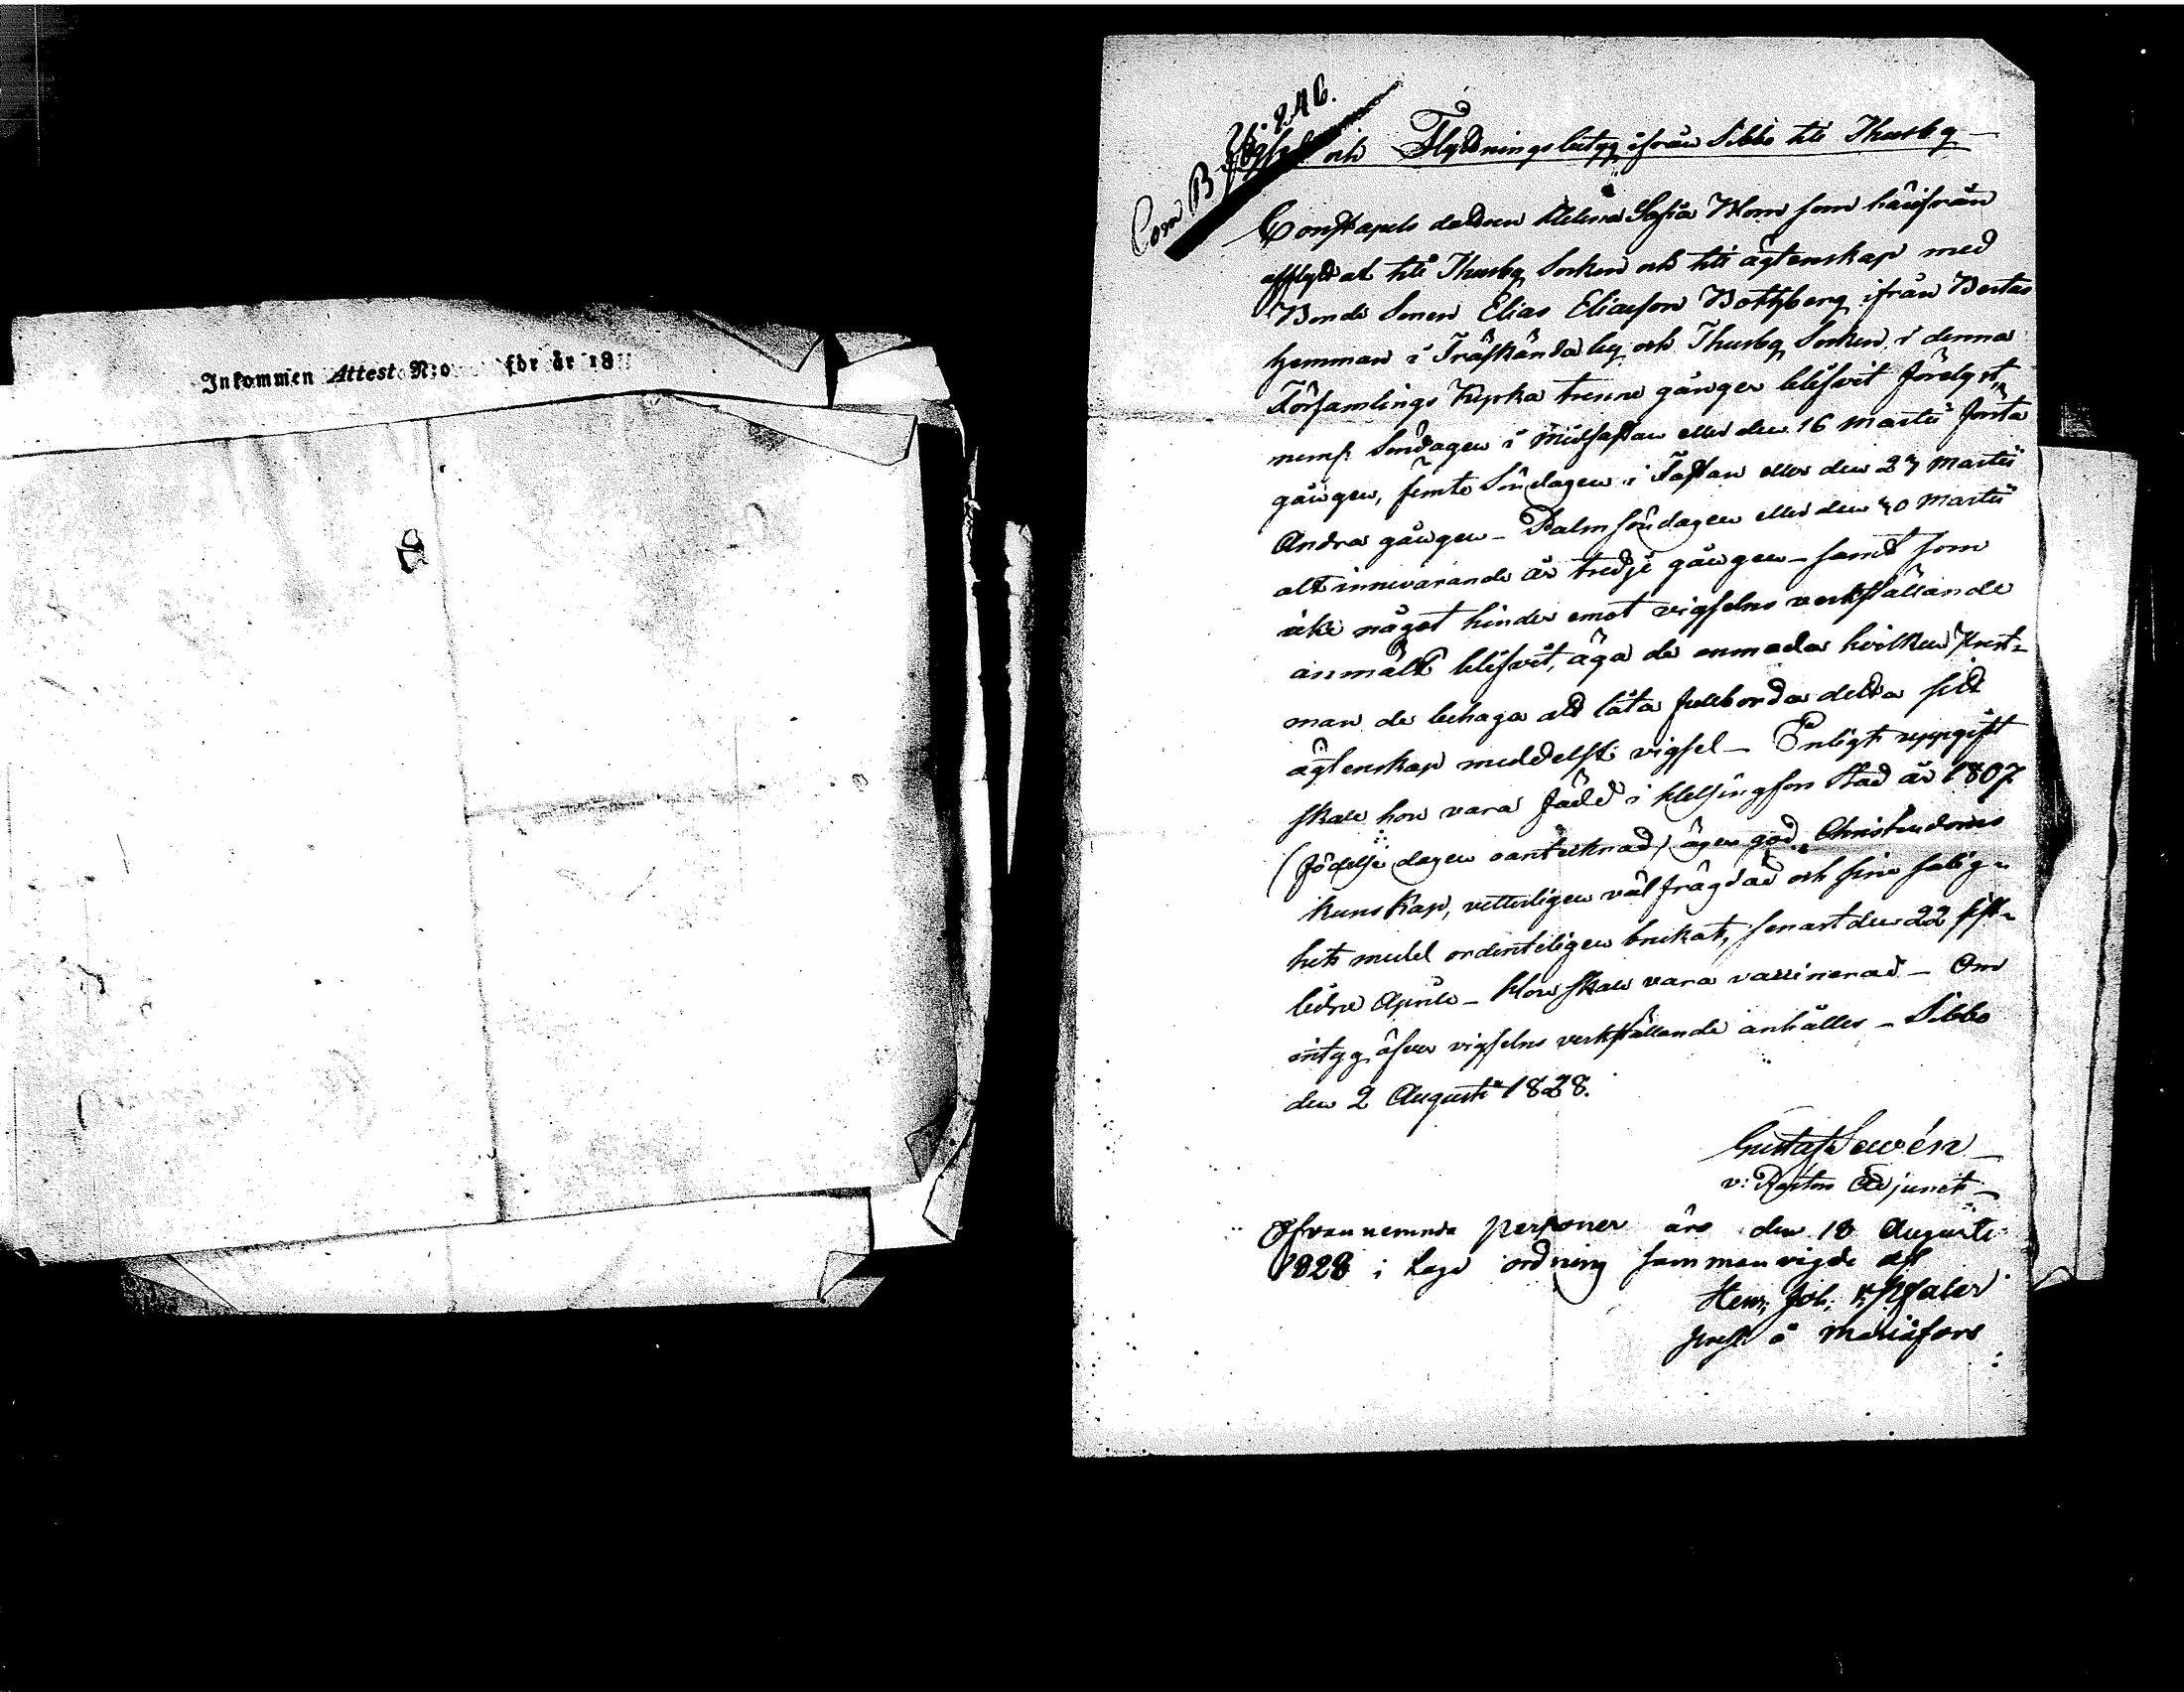 Inkommen Attest N:o för år 18
Com B p. 246.
Vigsel och Flyttningsbetyg ifrån Sibbo till Thusby
Constapels dottren Helena Sofia Blom som härifrån
afflyttat till Thusby Socken och till ägtenskap med
Bonde Sonen Elias Eliasson Bottsberg ifrån Bertas
hemman i Träskända by och Thusby Socken, i denna
Församlings Kyrka trenne gånger blifvit förelyst,
neml. Söndagen i Midfastan eller den 16 Martii första
gången, femte Söndagen i Fastan eller den 23 Martii
Andra gången - Palmsöndagen eller den 30 Martii
alt innevarande år tredje gången - samt som
icke något hinder emot vigselns verkställande
anmält blifvit, äga de anmoda hvilken Prest-
man de behaga att låta fullborda detta sitt
ägtenskap meddelst vigsel - Enligt uppgift
skall hon vara född i Helsingfors Stad år 1807
(födelse dagen oantecknad) äger god Christendoms
kunskap, vetterligen välfrägdad och sine salig-
hets medel ordenteligen brukat, senast den 22 sist-
ledne Aprill - Hon skall vara vaccinerad - Om
intyg öfver vigselns verkställande anhålles - Sibbo
den 2 Augusti 1828.
Gustaf Lewén
v: Pastors Adjunct
Ofvannemnda personer äro den 18 Augusti
1828 i laga ordning sammanvigde af
Henr: Joh: v: Pfaler
prest å Mariæfors